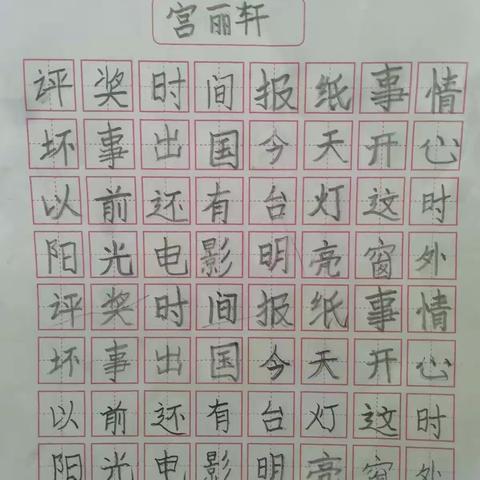 宫丽轩
评奖时间报纸事情
坏事出国今天开心
以前还有台灯这时
阳光电影明亮窗外
评奖时间报纸事情
坏事出国今天开心
以前还有台灯这时
阳光电影明亮窗外